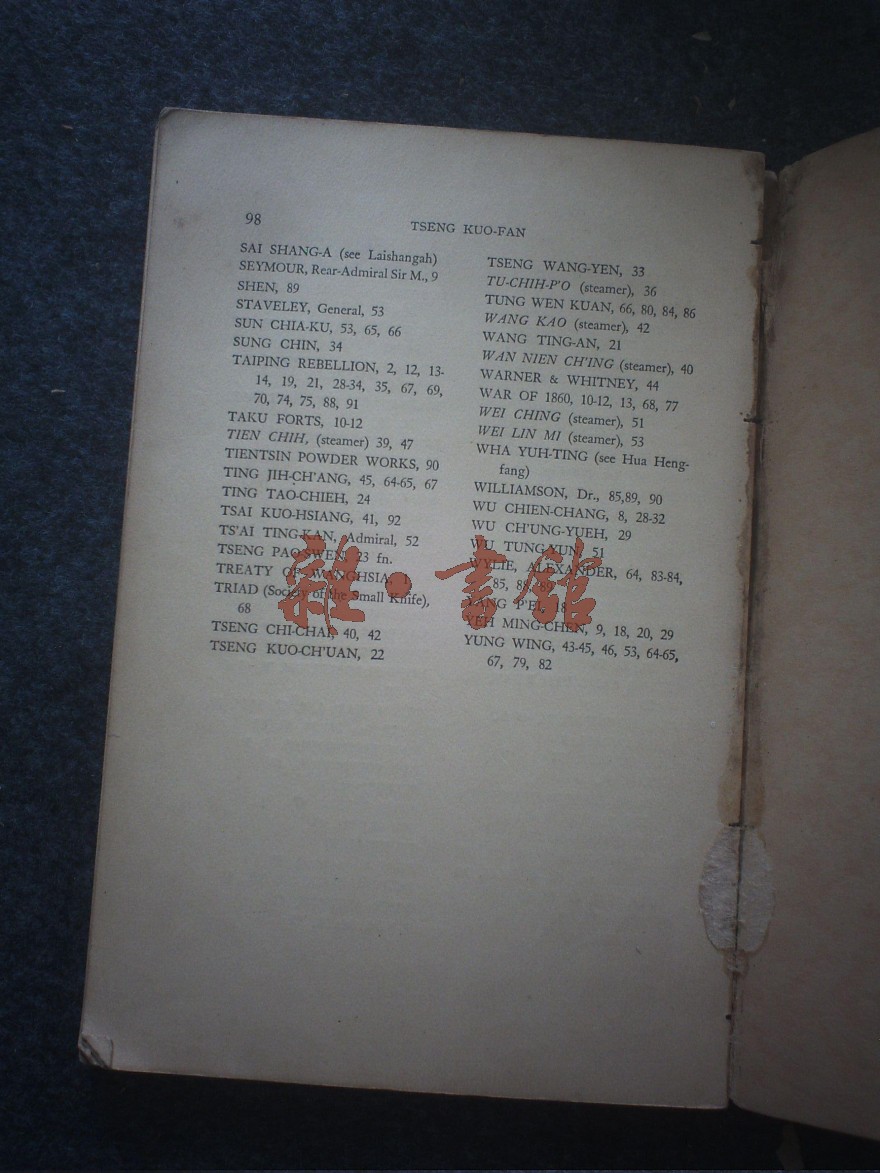 98
TSENG KUO-FAN
SAI SHANG-A (see Laishangah)
SEYMOUR, Rear-Admiral Sir M., 9
SHEN, 89
STAVELEY, General, 53
SUN CHIA-KU, 53, 65, 66
SUNG CHIN, 34
TAIPING REBELLION, 2, 12, 13-
14, 19, 21, 28-34, 35, 67, 69,
70, 74, 75, 88, 91
TAKU FORTS, 10-12
TIEN CHIH, (steamer) 39, 47
TIENTSIN POWDER WORKS, 90
TING JIH-CH'ANG, 45, 64-65, 67
TING TAO-CHIEH, 24
TSAI KUO-HSIANG, 41, 92
TS'AI TING-KAN, Admiral, 52
TSENG PAO-SWEN, 23 fn.
TREATY OF WANGHSIA,
TRIAD (Society of the Small Knife),
68
TSENG CHI-CHAI, 40, 42
TSENG KUO-CH'UAN, 22
TSENG WANG-YEN, 33
TU-CHIH-P'O (steamer), 36
TUNG WEN KUAN, 66, 80, 84, 86
WANG KAO (steamer), 42
WANG TING-AN, 21
WAN NIEN CH'ING (steamer), 40
WARNER & WHITNEY, 44
WAR OF 1860, 10-12, 13, 68, 77
WEI CHING (steamer), 51
WEI LIN MI (steamer), 53
WHA YUH-TING (see Hua Heng-
fang)
WILLIAMSON, Dr., 85,89, 90
WU CHIEN-CHANG, 8, 28-32
WU CH'UNG-YUEH, 29
WU TUNG-YUN, 51
WYLIE, ALEXANDER, 64, 83-84,
85, 88, 89
YANG P'EI, 18
YEH MING-CHEN, 9, 18, 20, 29
YUNG WING, 43-45, 46, 53, 64-65,
67, 79, 82
雜·書館